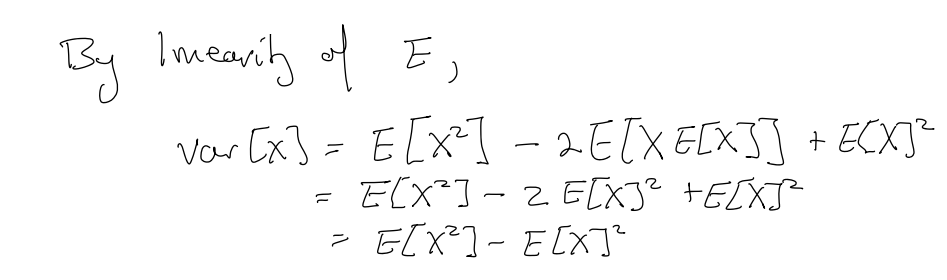 By linearity of E,
var[X] = E[X²] - 2E[X E[X]] + E[X]²
= E[X²] - 2 E[X]² + E[X]²
= E[X²] - E[X]²